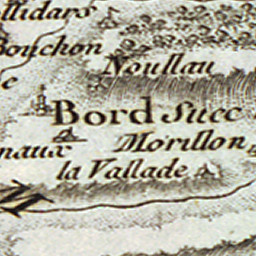 llidars
Bouchon
Noullau
e
Bord Succ
naux
Morillon
la Vallade